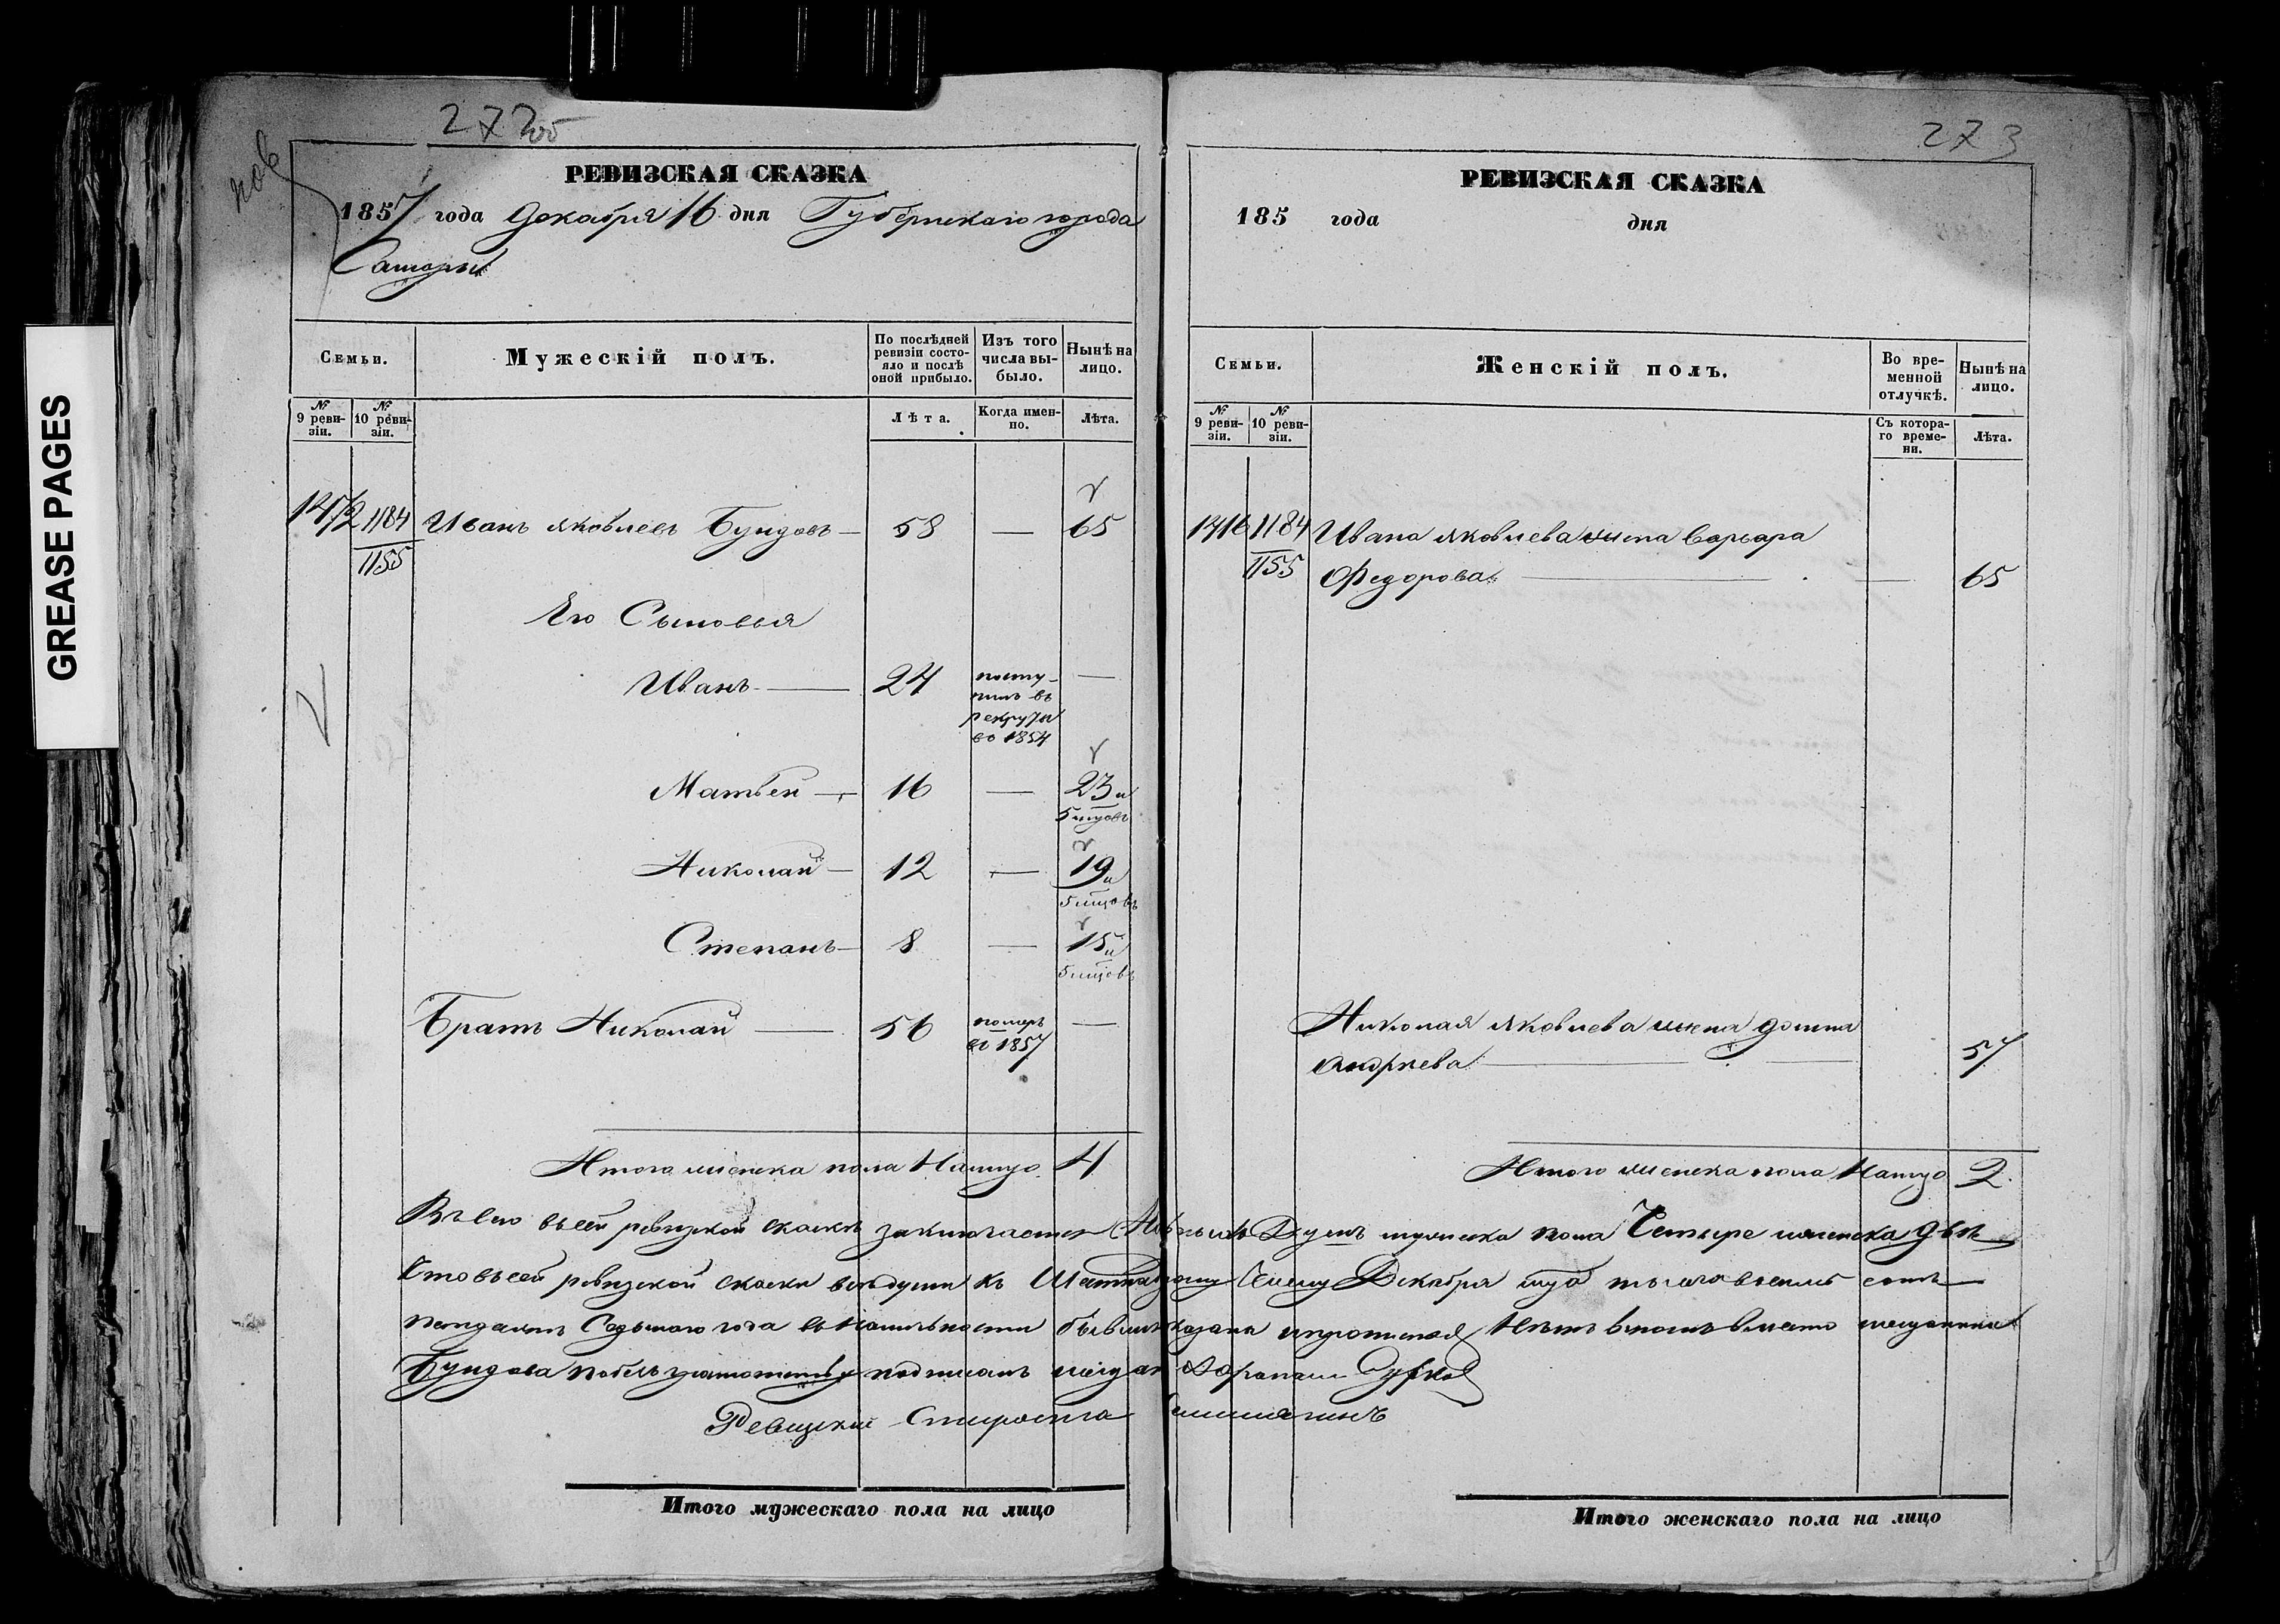 GREASE PAGES
272об
пов
РЕВИЗСКАЯ СКАЗКА
1857 года Декабря 16 дня Губернскаго города
Самары
Семьи.
Мужескій полъ.
По послѣдней ревизіи состояло и послѣ оной прибыло.
Изъ того числа выбыло.
Нынѣ на лицо.
№ 9 ревизіи.
№ 10 ревизіи.
Лѣта.
Когда именно.
Лѣта.
1472 1184 Иванъ Яковлевъ Бундовъ — 58 — 65
1155
Его Сыновья
Иванъ — 24 поступилъ въ рекруты во 1854 —
Матвей — 16 — 23 и
5 мцовъ
Николай — 12 — 19 и
5 мцовъ
Степанъ — 8 — 15 и
5 мцовъ
Братъ Николай — 56 померъ въ 1857 —
Итого мужска пола Налицо 4
273
РЕВИЗСКАЯ СКАЗКА
185 года дня
Семьи.
Женскій полъ.
Во временной отлучкѣ.
Нынѣ на лицо.
№ 9 ревизіи.
№ 10 ревизіи.
Съ котораго времени.
Лѣта.
1416 1184 Ивана Яковлева жена Варвара
1155 Федорова — — 65
Николая Яковлева жена Домна
Андреева — 57
Итого женска пола Налицо 2
въ сей ревизской сказке заключается Наличныхъ Душъ мужеска пола Четыре женска Две
Что въ сей ревизской сказки все души къ Шестнадцатому Числу Декабря тысяча восемь сотъ
пятдесятъ Седьмого года въ наличности бывшие показаны и прописных Нетъ в томъ вместо мещанина
Бундова подписалъ
Ревизский Староста
Итого мужескаго пола на лицо
Итого женскаго пола на лицо